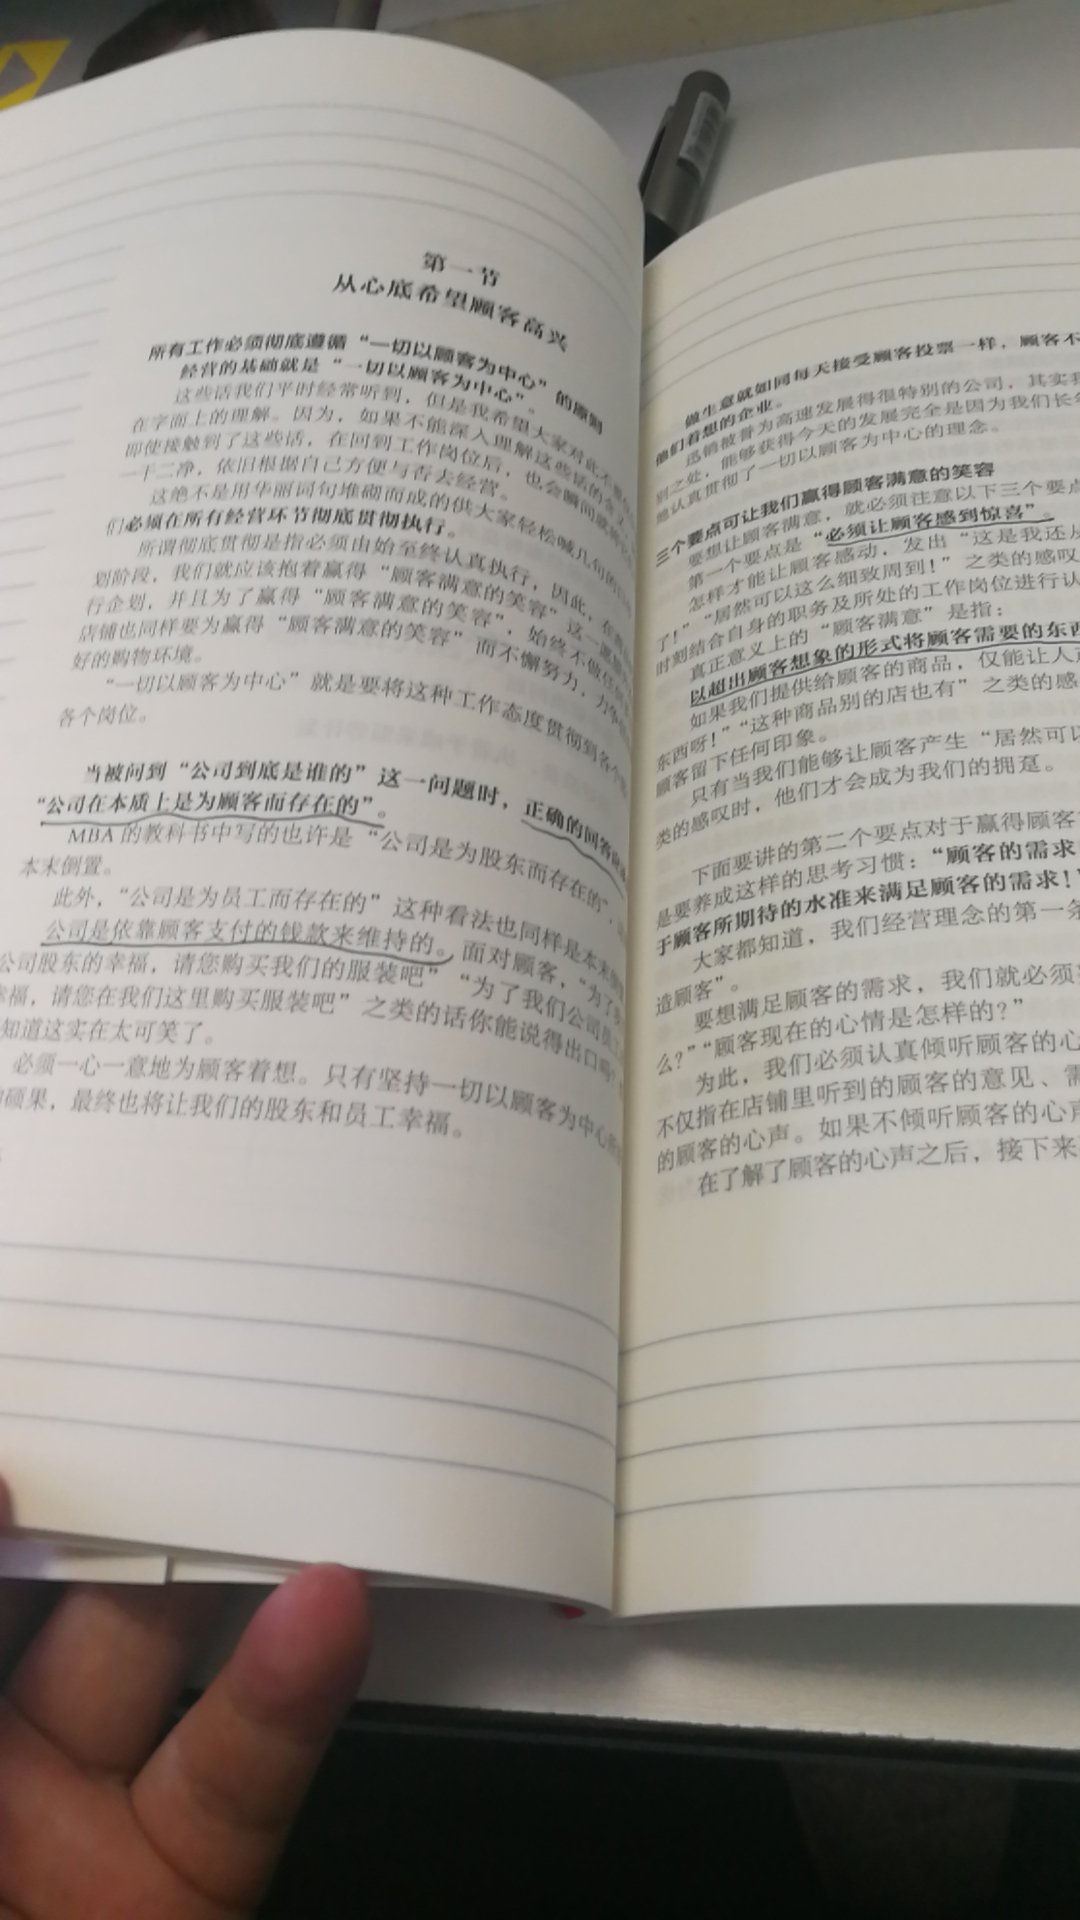 第一节
从心底希望顾客高兴
所有工作必须彻底遵循“一切以顾客为中心”的原则
经营的基础就是“一切以顾客为中心”。
这些话我们平时经常听到，但是我希望大家对此不
在字面上的理解。因为，如果不能深入理解这些话的含义
即使接触到了这些话，在回到工作岗位后，也会瞬间就
一干二净，依旧根据自己方便与否去经营。
这绝不是用华丽词句堆砌而成的供大家轻松喊几句的
们必须在所有经营环节彻底贯彻执行。
所谓彻底贯彻是指必须由始至终认真执行，因此，在
划阶段，我们就应该抱着赢得“顾客满意的笑容”这一
行企划，并且为了赢得“顾客满意的笑容”，始终不做任何
店铺也同样要为赢得“顾客满意的笑容”而不懈努力，力争
好的购物环境。
“一切以顾客为中心”就是要将这种工作态度贯彻到各个
各个岗位。
当被问到“公司到底是谁的”这一问题时，正确的回答
“公司在本质上是为顾客而存在的”。
MBA的教科书中写的也许是“公司是为股东而存在的”，
本末倒置。
此外，“公司是为员工而存在的”这种看法也同样是本末倒置
公司是依靠顾客支付的钱款来维持的。面对顾客，“为了
公司股东的幸福，请您购买我们的服装吧”“为了我们公司员工
福，请您在我们这里购买服装吧”之类的话你能说得出口吗？
知道这实在太可笑了。
必须一心一意地为顾客着想。只有坚持一切以顾客为中心
硕果，最终也将让我们的股东和员工幸福。
做生意就如同每天接受顾客投票一样，顾客不
他们着想的企业。
迅销被誉为高速发展得很特别的公司，其实我
别之处，能够获得今天的发展完全是因为我们长年
地认真贯彻了一切以顾客为中心的理念。
三个要点可让我们赢得顾客满意的笑容
要想让顾客满意，就必须注意以下三个要点
第一个要点是“必须让顾客感到惊喜”。
怎样才能让顾客感动，发出“这是我还从
了！”“居然可以这么细致周到！”之类的感叹
时刻结合自身的职务及所处的工作岗位进行认
真正意义上的“顾客满意”是指：
以超出顾客想象的形式将顾客需要的东西
如果我们提供给顾客的商品，仅能让人产
东西呀！”“这种商品别的店也有”之类的感
顾客留下任何印象。
只有当我们能够让顾客产生“居然可以
类的感叹时，他们才会成为我们的拥趸。
下面要讲的第二个要点对于赢得顾客
是要养成这样的思考习惯：“顾客的需求
于顾客所期待的水准来满足顾客的需求！”
大家都知道，我们经营理念的第一条
造顾客”。
要想满足顾客的需求，我们就必须
么？”“顾客现在的心情是怎样的？”
为此，我们必须认真倾听顾客的心
不仅指在店铺里听到的顾客的意见、需
的顾客的心声。如果不倾听顾客的心声
在了解了顾客的心声之后，接下来